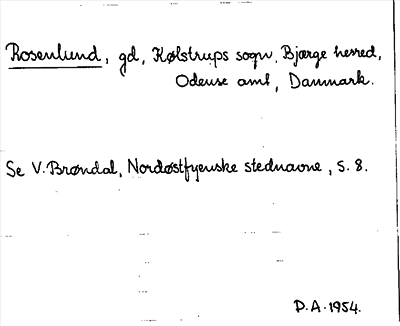 Rosenlund, gd, Kølstrups sogn, Bjærge herred,
Odense amt, Danmark.
Se V. Brøndal, Nordøstfyenske stednavne, s. 8.
D.A. 1954.